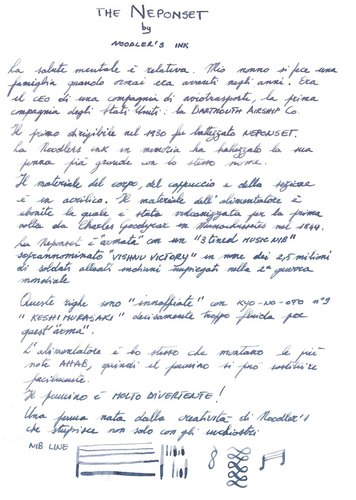 THE NEPONSET
by
NOODLER'S INK
La salute mentale è relativa. Mio nonno si fece una
famiglia quando ormai era avanti negli anni. Era
il CEO di una compagnia di aviotrasporti, la prima
compagnia degli Stati Uniti: la DARTMOUTH AIRSHIP Co.
Il primo dirigibile nel 1930 fu battezzato NEPONSET.
La Noodlers ink in memoria ha battezzato la sua
penna più grande con lo stesso nome.
Il materiale del corpo, del cappuccio e della sezione
è in acrilico. Il materiale dell'alimentatore è
ebanite la quale è stata vulcanizzata per la prima
volta da Charles Goodyear in Massachusetts nel 1844.
La Neponset è "armata" con un "3 tined MUSIC NIB"
soprannominato "VISHNU VICTORY" in nome dei 2,5 milioni
di soldati alleati indiani impiegati nella 2ª guerra
mondiale
Queste righe sono "innaffiate" con KYO-NO-OTO n°9
"KESHIMURASAKI" decisamente troppo fluida per
quest'"arma".
L'alimentatore è lo stesso che montano le più
note AHAB, quindi il pennino si può sostituire
facilmente.
Il pennino è MOLTO DIVERTENTE!
Una penna nata dalla creatività di Noodler's
che stupisce non solo con gli inchiostri
NIB LINE